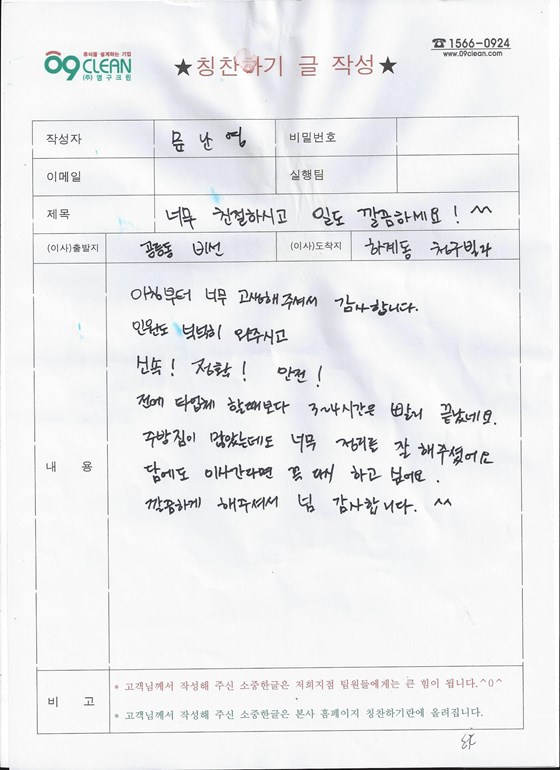 휴식을 설계하는 기업
09 CLEAN
(주)영구크린
☎ 1566-0924
www.09clean.com
★칭찬하기 글 작성★
작성자 문난영 비밀번호
이메일 실행팀
제목 너무 친절하시고 일도 깔끔하세요! ^^
(이사)출발지 공릉동 비선 (이사)도착지 하계동 청구빌라
내 용
아침부터 너무 고생해주셔서 감사합니다.
인원도 넉넉히 와주시고
신속! 정확! 안전!
전에 타업체 할때보다 3~4시간은 빨리 끝났네요.
주방짐이 많았는데도 너무 정리를 잘 해주셨어요
담에도 이사간다면 꼭 다시 하고 싶어요.
깔끔하게 해주셔서 넘 감사합니다. ^^
비 고
* 고객님께서 작성해 주신 소중한글은 저희지점 팀원들에게는 큰 힘이 됩니다.^0^
* 고객님께서 작성해 주신 소중한글은 본사 홈페이지 칭찬하기란에 올려집니다.